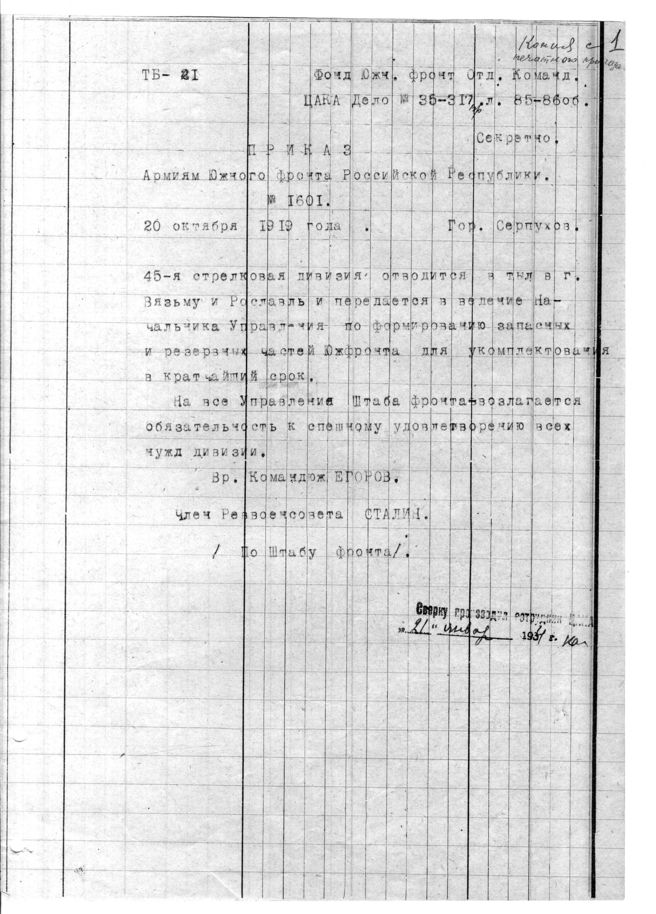 Копия с 1
печатного приказа
ТБ- 21 Фонд Южн. фронт Отд. Команд.
ЦАКА Дело № 35-317 л. 85-86об.
Секретно.
П Р И К А З
Армиям Южного фронта Российской Республики.
№ 1601.
20 октября 1919 года . Гор. Серпухов.
45-я стрелковая дивизия отводится в тыл в г.
Вязьму и Рославль и передается в ведение На-
чальника Управления по формированию запасных
и резервных частей Южфронта для укомплектования
в кратчайший срок.
На все Управления Штаба фронта возлагается
обязательность к спешному удовлетворению всех
нужд дивизии.
Вр. Командюж ЕГОРОВ.
Член Реввоенсовета СТАЛИН.
/ По Штабу фронта/.
Сверку производил сотрудник ЦАКА
„21" январ 1934 г.